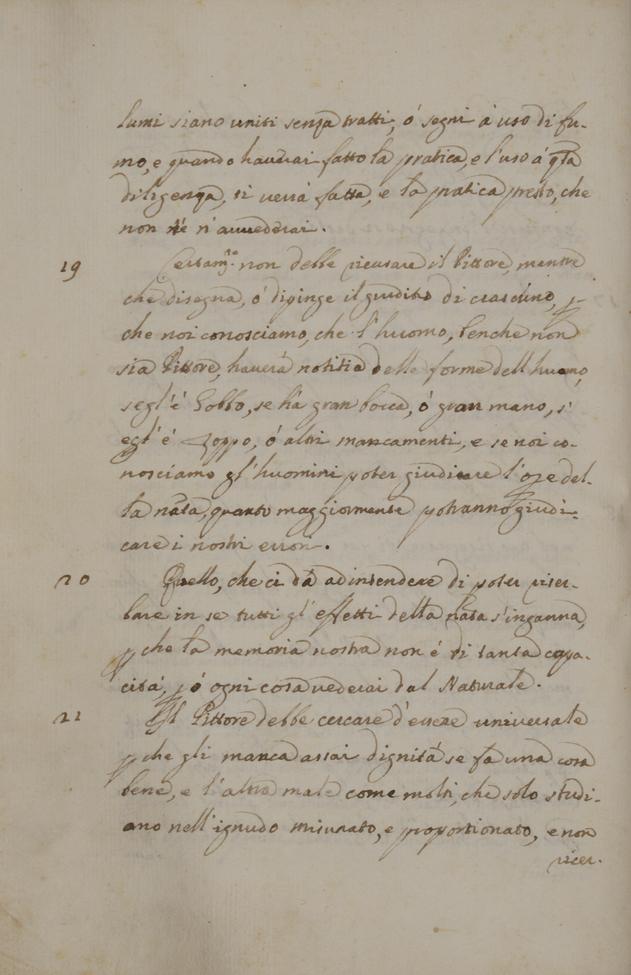 lumi siano uniti senza tratti, ò segni à uso di fu-
mo, e quando haverai fatto la pratica, e l'uso á qta
diligenza, ti verrá fatta, e la pratica presto, che
non te n'avvederai.
19 Certamte non debbe ricusare il Pittore, mentre
che disegna, ó dipinge il giuditio di ciascuno, p
che noi conosciamo, che l'huomo, benche non
sia Pittore, haverá notitia delle forme dell'huomo,
s'egl'é Gobbo, se há gran bocca, ó gran mano, s'
egl'é Zoppo, ó altri mancamenti, e se noi co-
nosciamo gl'huomini poter giudicare l'opre del-
la nata, quanto maggiormente potranno giudi-
care i nostri errori.
20 Quello, che ci dá ad intendere di poter riser-
bare in se tutti gl'effetti della nata s'inganna,
p che la memoria nostra non é di tanta capa-
citá, p ó ogni cosa vederai dal Naturale.
21 Il Pittore debbe cercare d'essere universale
p che gli manca assai dignitá se fa una cosa
bene, e l'altra male come molti, che solo studi-
ano nell'ignudo misurato, e proportionato, e non
ricer-